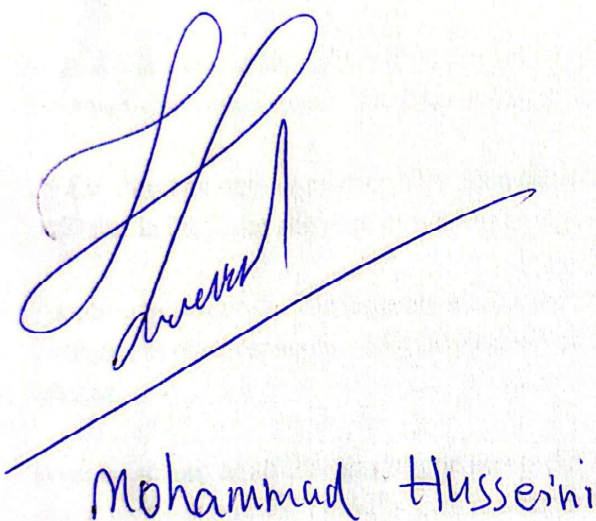 Mohammad Husseini